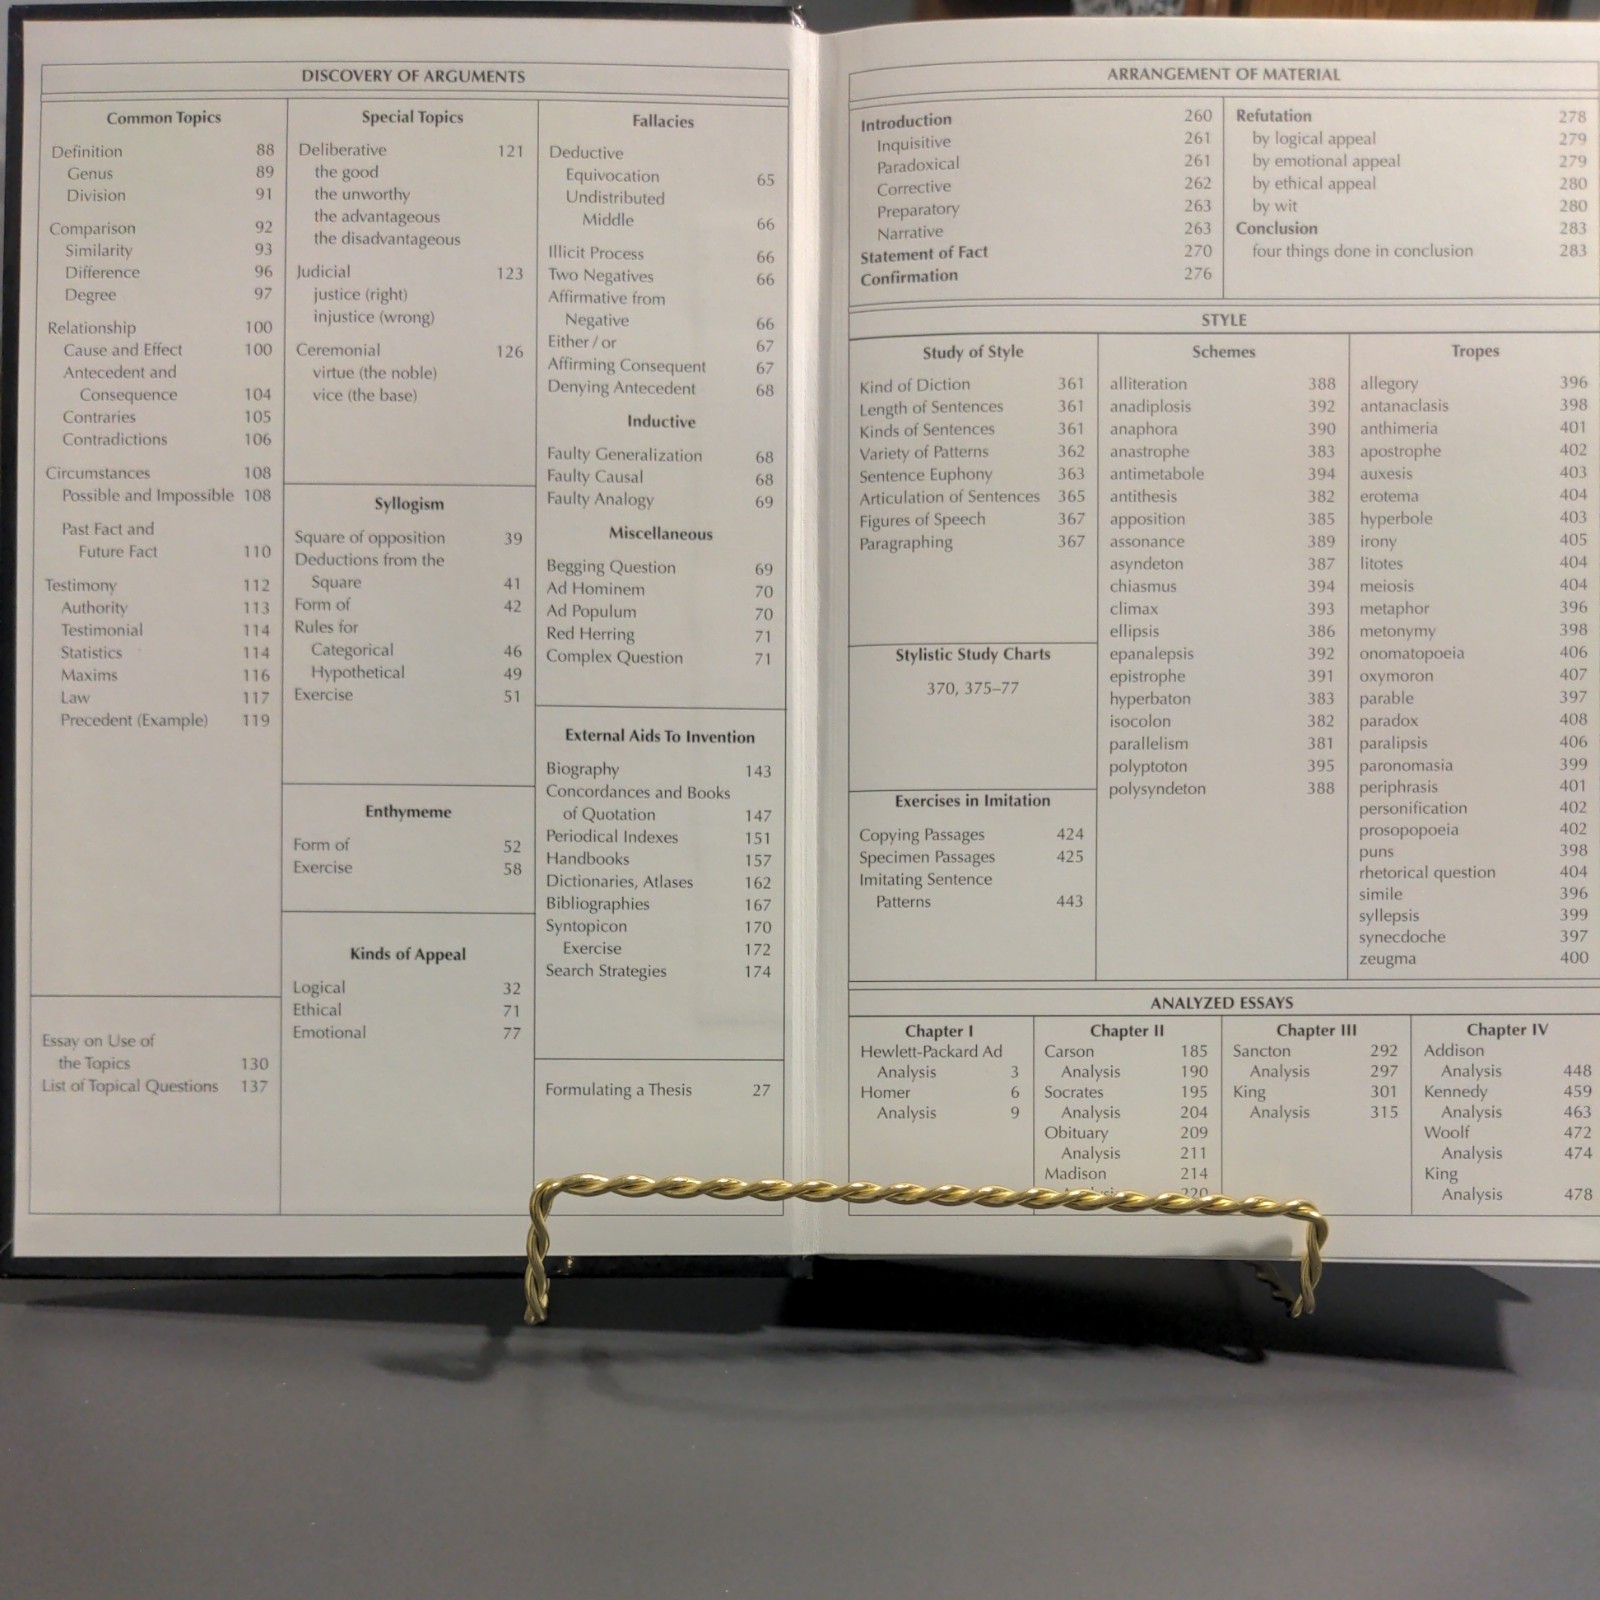 DISCOVERY OF ARGUMENTS
Common Topics
Definition 88
Genus 89
Division 91
Comparison 92
Similarity 93
Difference 96
Degree 97
Relationship 100
Cause and Effect 100
Antecedent and
Consequence 104
Contraries 105
Contradictions 106
Circumstances 108
Possible and Impossible 108
Past Fact and
Future Fact 110
Testimony 112
Authority 113
Testimonial 114
Statistics 114
Maxims 116
Law 117
Precedent (Example) 119
Essay on Use of
the Topics 130
List of Topical Questions 137
Special Topics
Deliberative 121
the good
the unworthy
the advantageous
the disadvantageous
Judicial 123
justice (right)
injustice (wrong)
Ceremonial 126
virtue (the noble)
vice (the base)
Syllogism
Square of opposition 39
Deductions from the
Square 41
Form of 42
Rules for
Categorical 46
Hypothetical 49
Exercise 51
Enthymeme
Form of 52
Exercise 58
Kinds of Appeal
Logical 32
Ethical 71
Emotional 77
Fallacies
Deductive
Equivocation 65
Undistributed
Middle 66
Illicit Process 66
Two Negatives 66
Affirmative from
Negative 66
Either / or 67
Affirming Consequent 67
Denying Antecedent 68
Inductive
Faulty Generalization 68
Faulty Causal 68
Faulty Analogy 69
Miscellaneous
Begging Question 69
Ad Hominem 70
Ad Populum 70
Red Herring 71
Complex Question 71
External Aids To Invention
Biography 143
Concordances and Books
of Quotation 147
Periodical Indexes 151
Handbooks 157
Dictionaries, Atlases 162
Bibliographies 167
Syntopicon 170
Exercise 172
Search Strategies 174
Formulating a Thesis 27
ARRANGEMENT OF MATERIAL
Introduction 260
Inquisitive 261
Paradoxical 261
Corrective 262
Preparatory 263
Narrative 263
Statement of Fact 270
Confirmation 276
Refutation 278
by logical appeal 279
by emotional appeal 279
by ethical appeal 280
by wit 280
Conclusion 283
four things done in conclusion 283
STYLE
Study of Style
Kind of Diction 361
Length of Sentences 361
Kinds of Sentences 361
Variety of Patterns 362
Sentence Euphony 363
Articulation of Sentences 365
Figures of Speech 367
Paragraphing 367
Stylistic Study Charts
370, 375–77
Exercises in Imitation
Copying Passages 424
Specimen Passages 425
Imitating Sentence
Patterns 443
Schemes
alliteration 388
anadiplosis 392
anaphora 390
anastrophe 383
antimetabole 394
antithesis 382
apposition 385
assonance 389
asyndeton 387
chiasmus 394
climax 393
ellipsis 386
epanalepsis 392
epistrophe 391
hyperbaton 383
isocolon 382
parallelism 381
polyptoton 395
polysyndeton 388
Tropes
allegory 396
antanaclasis 398
anthimeria 401
apostrophe 402
auxesis 403
erotema 404
hyperbole 403
irony 405
litotes 404
meiosis 404
metaphor 396
metonymy 398
onomatopoeia 406
oxymoron 407
parable 397
paradox 408
paralipsis 406
paronomasia 399
periphrasis 401
personification 402
prosopopoeia 402
puns 398
rhetorical question 404
simile 396
syllepsis 399
synecdoche 397
zeugma 400
ANALYZED ESSAYS
Chapter I
Hewlett-Packard Ad
Analysis 3
Homer 6
Analysis 9
Chapter II
Carson 185
Analysis 190
Socrates 195
Analysis 204
Obituary 209
Analysis 211
Madison 214
220
Chapter III
Sancton 292
Analysis 297
King 301
Analysis 315
Chapter IV
Addison
Analysis 448
Kennedy 459
Analysis 463
Woolf 472
Analysis 474
King
Analysis 478